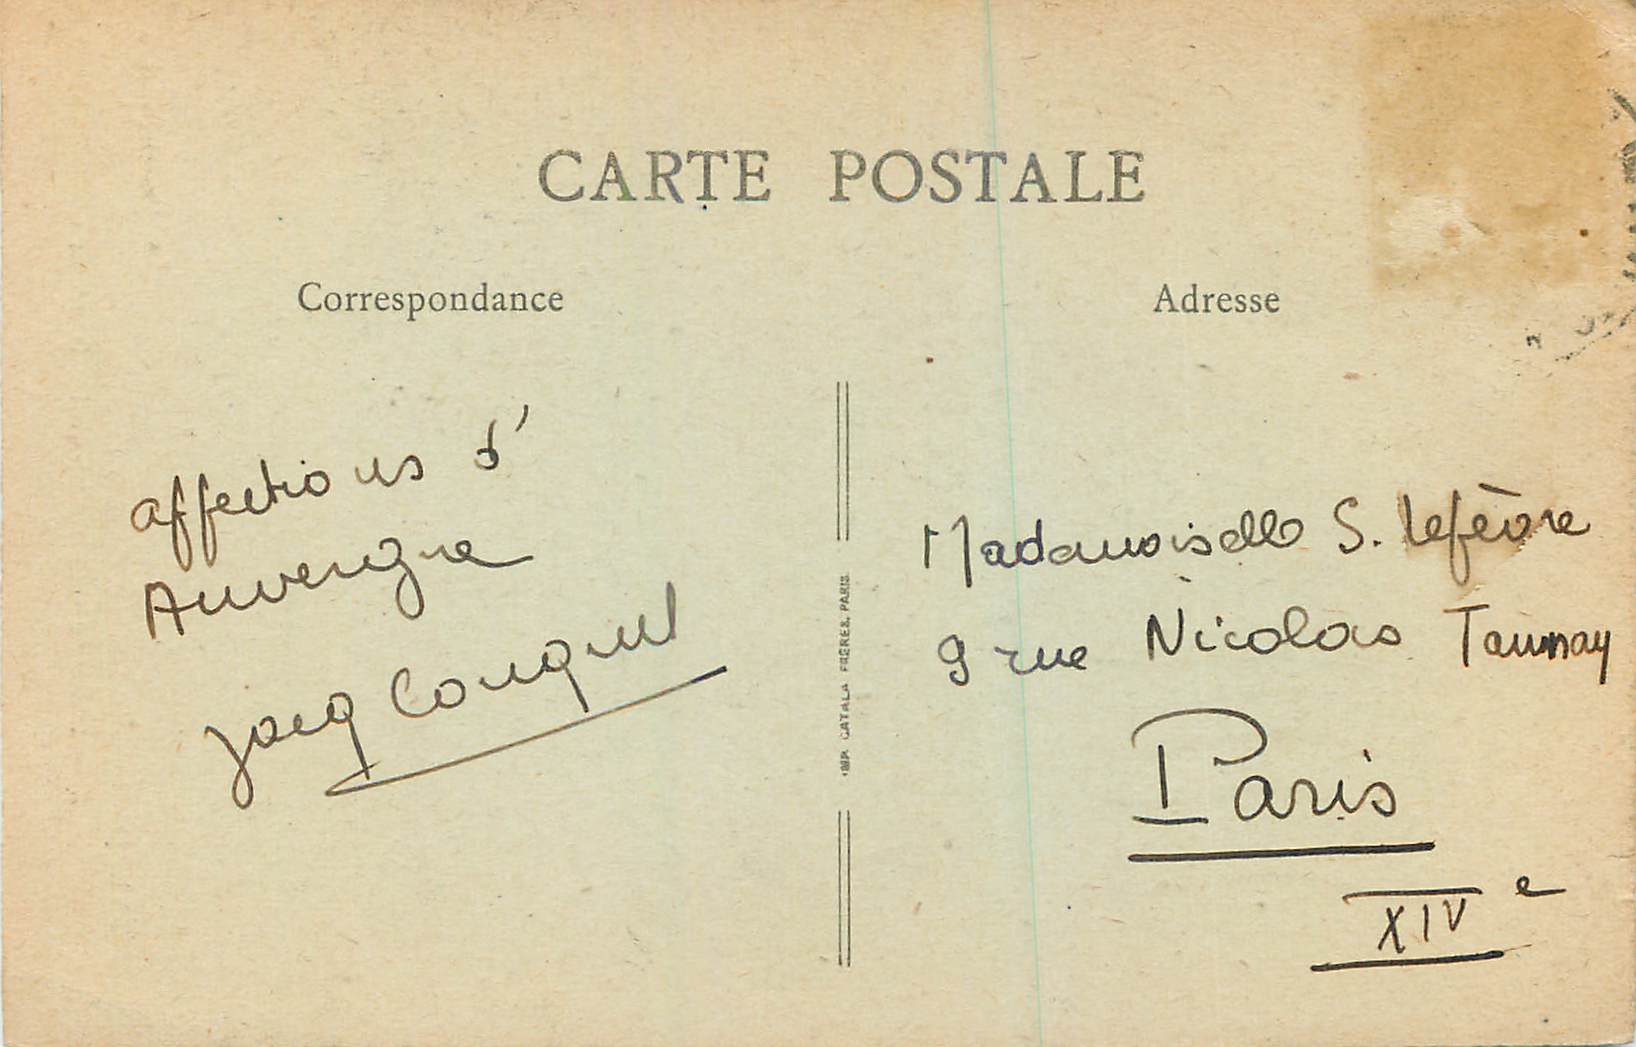 CARTE POSTALE
Correspondance
Adresse
affections d'
Auvergne
Jacq Conquet
IMP. CATALA FRÈRES, PARIS
Mademoiselle S. Lefèvre
9 rue Nicolas Taunay
Paris
XIVe